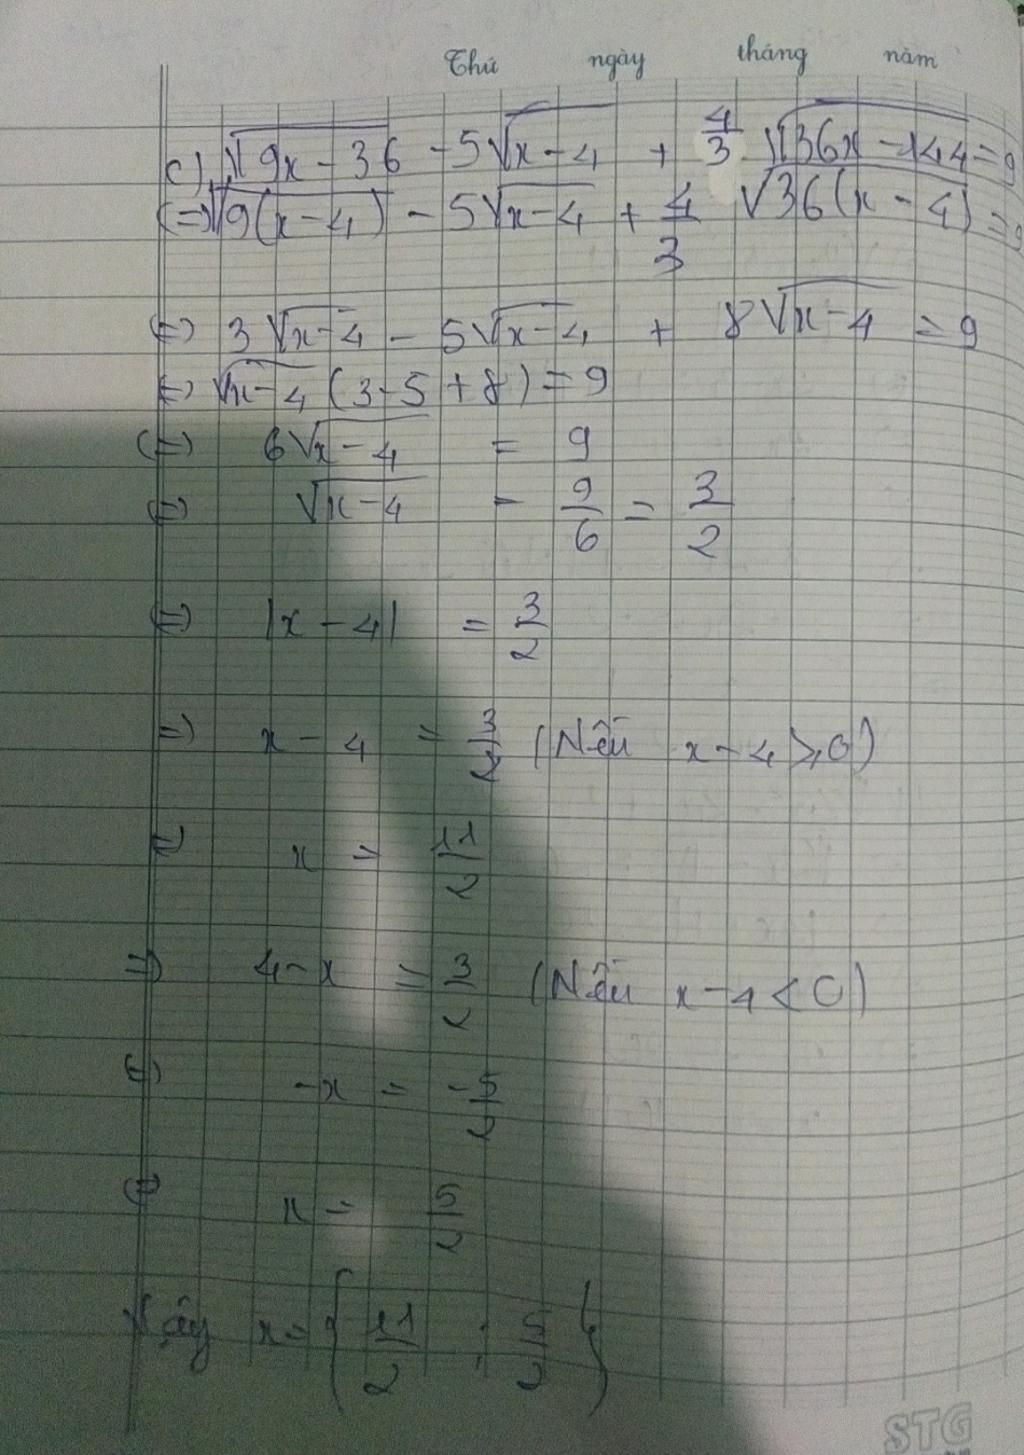 Thứ ngày tháng năm
c) √9x - 36 - 5√x - 4 + 4/3 √36x - 144 = 9
(=) √9(x - 4) - 5√x - 4 + 4/3 √36(x - 4) = 9
(=) 3√x - 4 - 5√x - 4 + 8√x - 4 = 9
(=) √x - 4 (3 - 5 + 8) = 9
(=) 6√x - 4 = 9
(=) √x - 4 = 9/6 = 3/2
(=) |x - 4| = 3/2
=) x - 4 = 3/2 (Nếu x - 4 ⩾ 0)
=) x = 11/2
=) 4 - x = 3/2 (Nếu x - 4 < 0)
(=) -x = -5/2
(=) x = 5/2
Vậy x = {11/2 ; 5/2}
STG